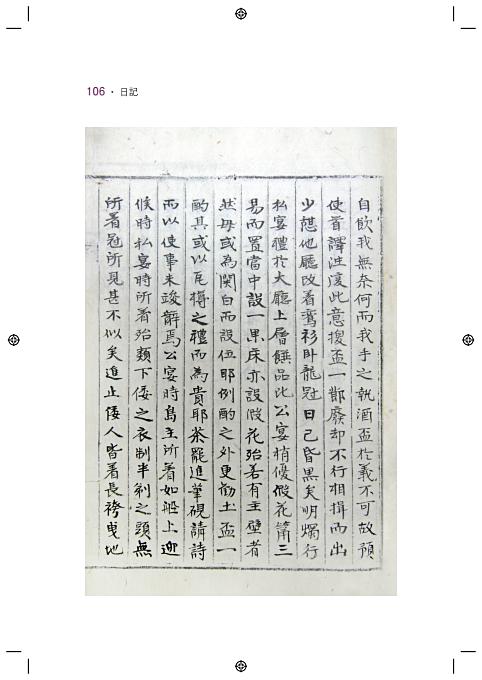 106 · 日記
自飮我無奈何而我手之執酒盃於義不可故預
使首譯洼復此意擾盃一斝廢却不行相揖而出
少憩他廳改着鸞衫卧龍冠日已昏黑矣明燭行
私宴禮於大廳上層饌品比公宴稍優假花簫三
易而置當中設一果床亦設假花殆若有主壁者
然毋或為関白而設位耶例酌之外更勸土盃一
酌其或以瓦樽之禮而為貴耶茶罷進筆硯請詩
而以使事未竣辭焉公宴時島主所着如船上迎
候時私宴時所着殆類下倭之衣制半剃之頭無
所着冠所見甚不似矣進止倭人皆着長袴曳地